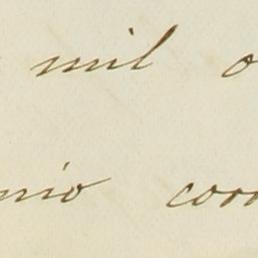 mil o
nio con